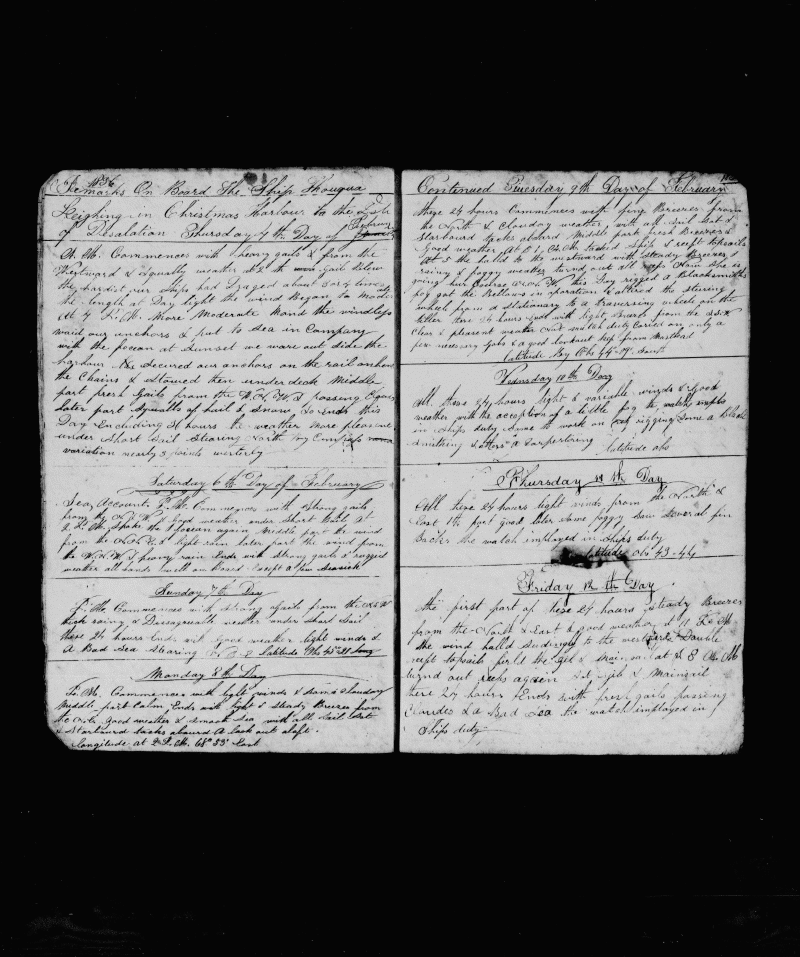 1836
Remarks On Board the Ship Houqua
Leighing in Christmas Harbour to the Isle
of Desolation Thursday 4 th Day of February
A. M. Commences with heavy gails from the
Westward & squally weather at 2 th gail blew
the hardist our Ships had Draged about 3 or 4 times
the length at Day light the wind Began to Moder
at 4 P. M. More Moderate Mand the windlass
waid our unchors & put to Sea in Company
with the pocean at Sunset we ware out side the
harbour Secured our anchors on the rail unbent
the Chains & Stowed them under deck Middle
part fresh Gails from the W. N. W. & possing Clouds
later part Squalls of hail & Snow So ends this
Day Including 36 hours the weather More pleasent
under Short Sail Stearing North by Compass
variation nearly 3 points westerly
Saturday 6 th Day of February
Sea Account P. M. Commences with strong gails
from the W. N. W. Good weather under Short Sail At
P. M. Spoke the pocean again Middle part the wind
from the N. N. E. & light rain later part the wind from
the W. N. W. & heavy rain Ends with strong gails & rugged
weather all hands well on Board Except a few Seasick
Sunday 7 th Day
P. M. Commences with strong Gails from the N. N. W
thick rainy & Disagreable weather under Short Sail
these 24 hours Ends with Good weather light winds &
A Bad Sea Stearing latitude Obs 45-21 Long
Monday 8 th Day
P. M. Commences with light winds & some clouday
Middle part Calm, Ends with light & steady Breezes from
the North Good weather & smooth Sea with all Sail Out
Starbourd tacks abourd A look out aloft
longitude at 2 P. M. 68° 33' East
Continued Tuesday 9 th Day of February
these 24 hours Commences with fine Breezes from
the North & Cloudy weather with all Sail Out &
Starbourd tacks abord Middle part fresh Breezes &
Good weather at M tacked Ships & reeft topsails
at 5 the halld to the westward with steady Breezes
rainy & foggy weather turnd out all reefs Down She is
going her Coerse W. N. W. this Day rigged a Blacksmiths
fog got the Bellows in oporation & altered the stering
wheel from a stationary to a traversing wheel on the
tiller these 24 hours Ends with light Breeze from the
Clear & pleasent weather watch duty Carred on only a
few necesery Jobs & a good lookout keep from Masthead
latitude By Obs 44-17 South
Wednsday 10 th Day
All these 24 hours light & variable winds & Good
weather with the acceptipn of a little fog the watch
in Ships duty Some to work on rigging Some a Black
Smithing & others a Carpertering
latitude obs
Thursday 11 th Day
All these 24 hours light winds from the North &
East 1st part good later Some foggy Saw several fin
Backs the watch imployed in Ships duty
latitude obs 43-44
Friday 12 th Day
the first part of these 24 hours steady Breezes
from the North & East & good weather at 11 P. M
the wind halld sudingly to the westward Double
reeft topsails furld the Gib & Mainsail at 8 A. M
turnd out reefs again Set Gib & Mainsail
these 24 hours Ends with fresh gails passing
Cloudes & a Bad Sea the watch imployed in
Ships duty